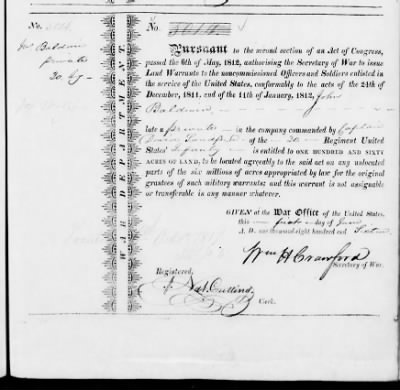 No.
Jno Baldwin
private
20. Regt
WAR DEPARTMENT.
No.
Pursuant to the second section of an Act of Congress,
passed the 6th of May, 1812, authorising the Secretary of War to issue
Land Warrants to the noncommissioned Officers and Soldiers enlisted in
the service of the United States, conformably to the acts of the 24th of
December, 1811, and of the 11th of January, 1812, John
Baldwin
late a private in the company commanded by Captain
of the 20 Regiment United
States' Infantry
is entitled to ONE HUNDRED AND SIXTY
ACRES OF LAND, to be located agreeably to the said act on any unlocated
parts of the six millions of acres appropriated by law for the original
grantees of such military warrants; and this warrant is not assignable
or transferable in any manner whatever.
GIVEN at the War Office of the United States,
this first day of June
A. D. one thousand eight hundred and Sixteen
Wm H Crawford
Secretary of War.
Registered,
Nat. Cutting
Clerk.